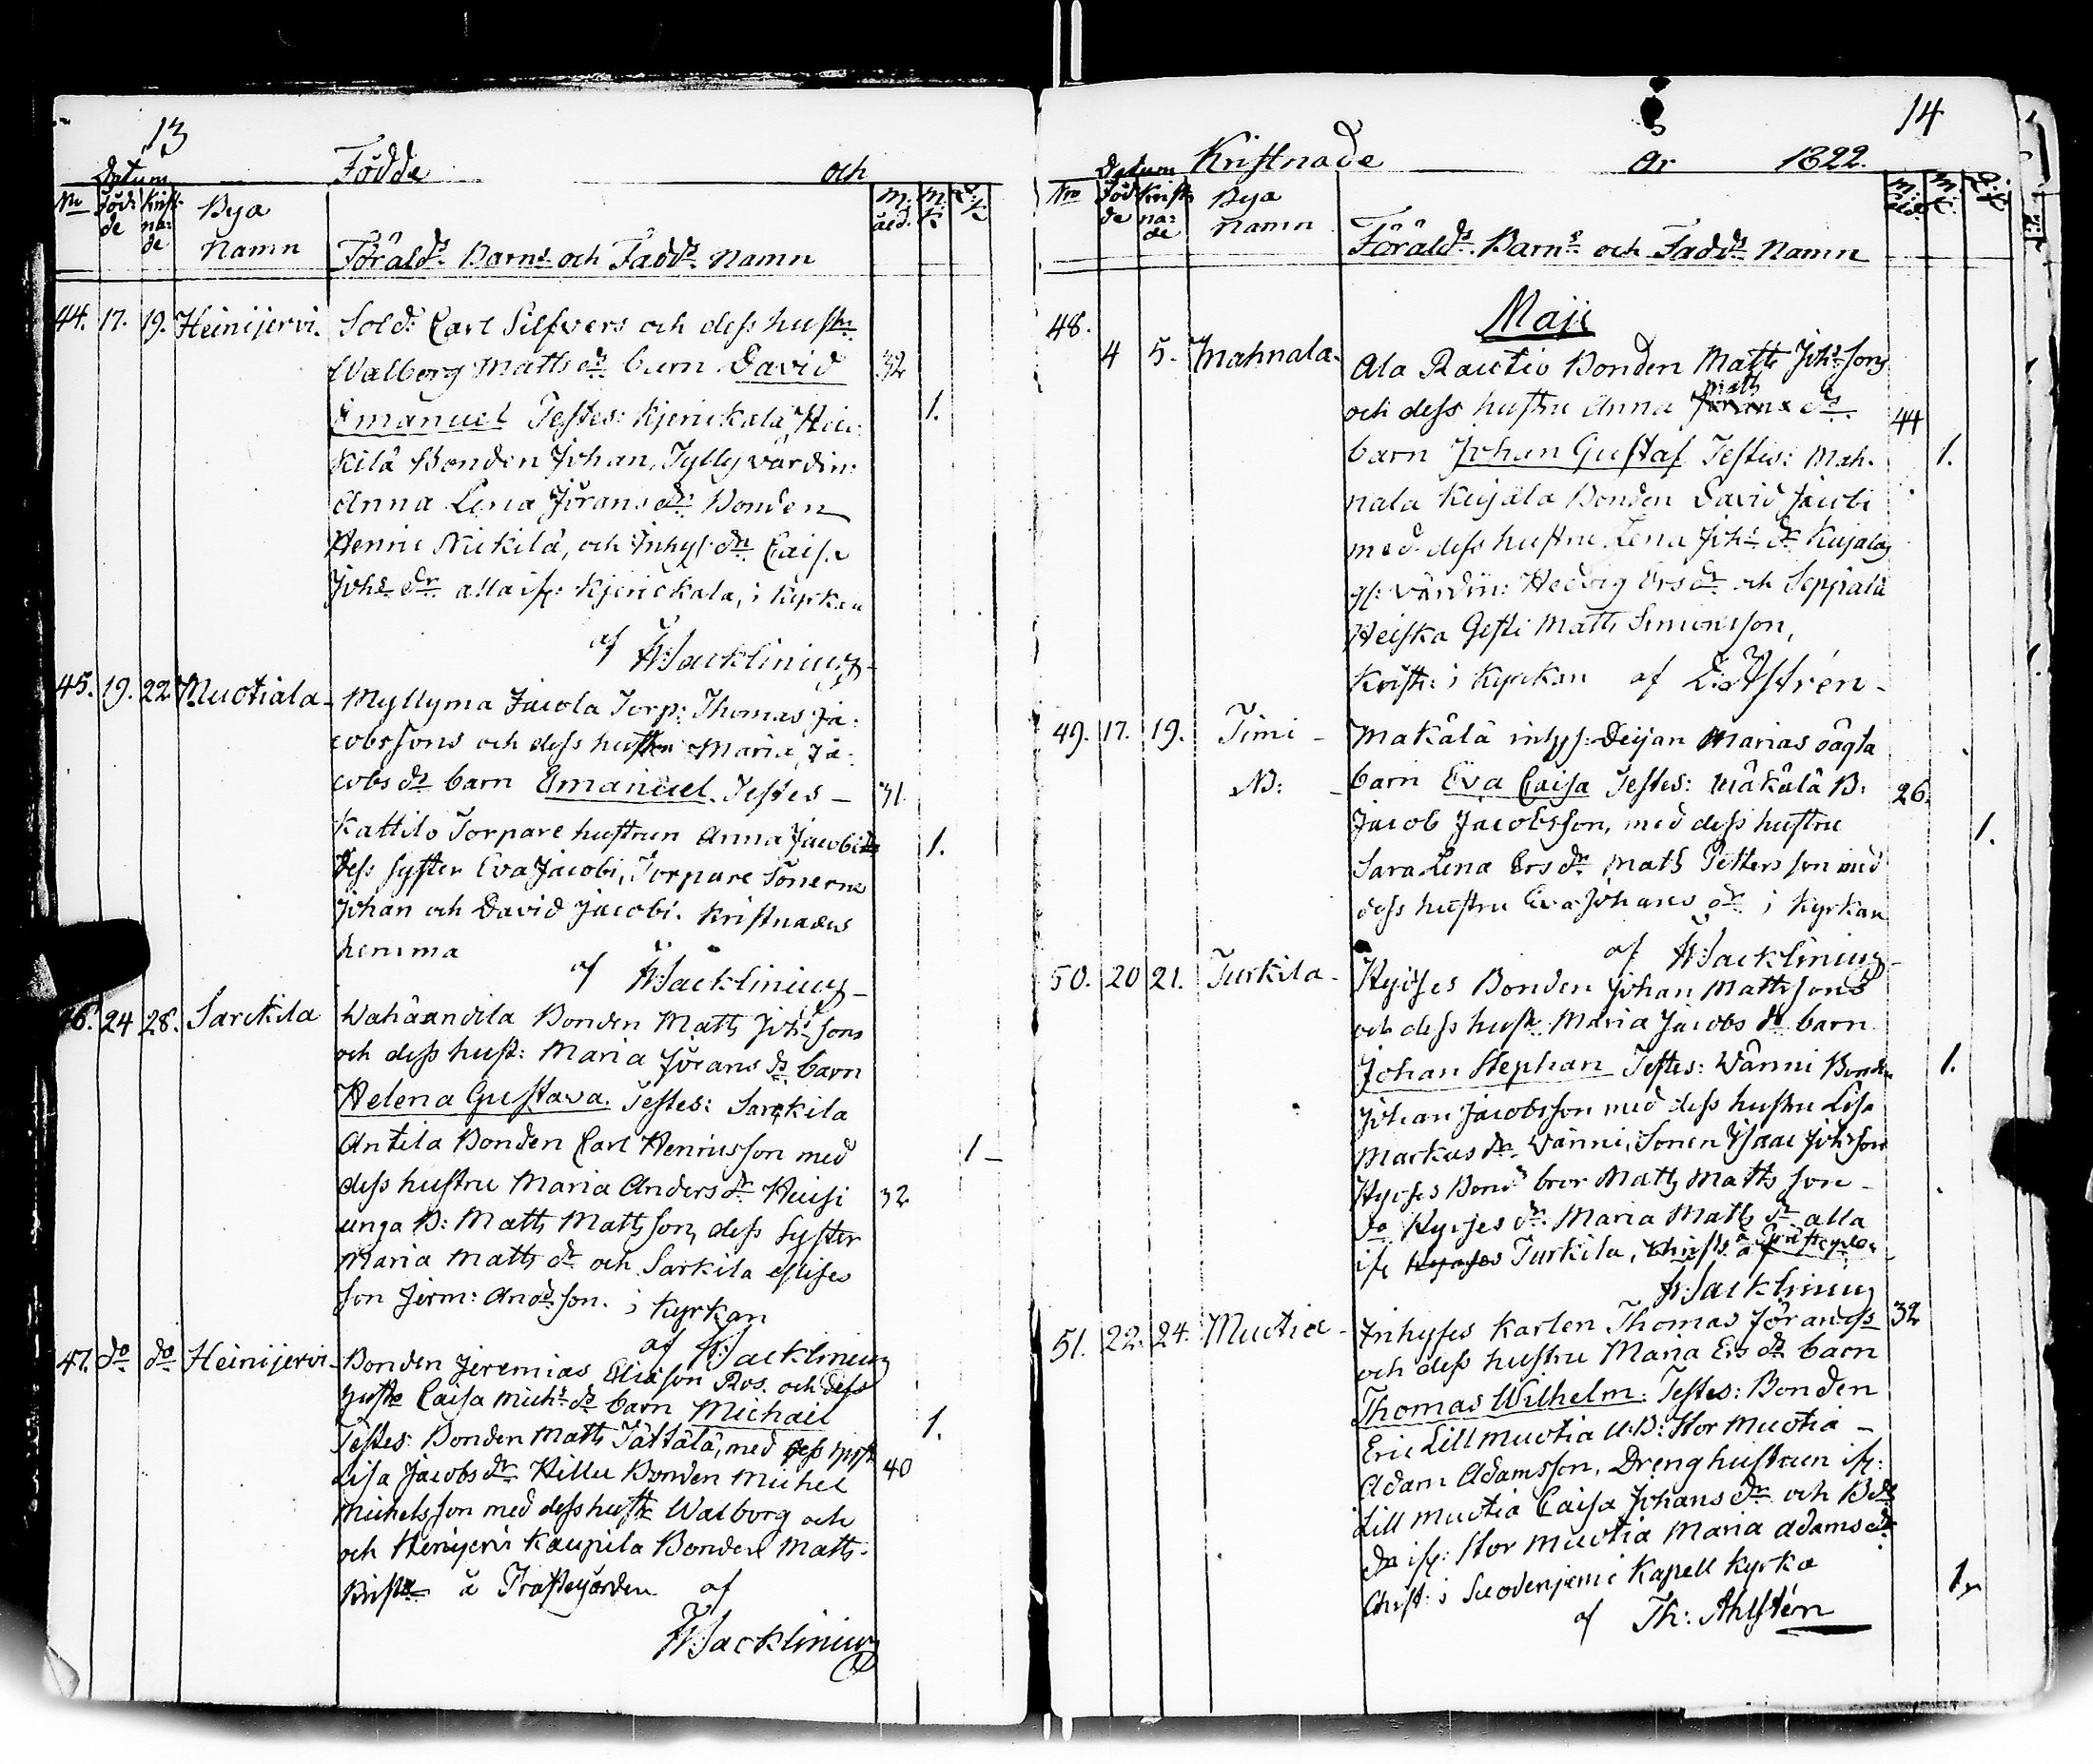 13
Datum
Födde och
No
Född
de
Krist
na:
de
Bya
Namn
Förälds. Barns och Fadds Namn
M.
åld.
M.
K
Q.
K
44. 17. 19. Heinijervi. Sold: Carl Silfvers och dess hustr
Walborg Mattsdr barn David 32
Emanuel Testes: Kjerickala, Hei-
kilä Bonden Johan, Tylly värdin:
Anna Lena Jöransdr Bonden
Henric Nickilä, och Inhys: dr Caisa
Johs dr alla ifr: Kjerickala, i Kyrkan
1.
af H: Jacklinius
45. 19. 22 Muotiala Myllyma Jacola Torp: Thomas Ja:
cobssons och dess hustru Maria Ja-
cobs dr barn Emanuel. Testes 31
Kattilo Torpare hustrun Anna Jacobi 1.
dess syster Eva Jacobi, Torpare Sönerne
Johan och David Jacobi. Kristnades
hemma
af H: Jacklinius
46. 24 28. Sarckila Wahäandila Bonden Matts Johs sons
och dess hust: Maria Jörans dr barn
Helena Gustava. Testes: Sarckila
Antila Bonden Carl Henricsson med 1
dess hustru Maria Anders dr Huisi 32
unga B: Matts Mattsson, dess Syster
Maria Matts dr och Sarkila
son Jerm: Andsson. i Kyrkan
af H: Jacklinius
47. do do Heinijervi Bonden Jeremias Eliæson Ros. och dess
hustr Caisa Michs dr barn Michaël 1.
Testes: Bonden Matts Tättälä, med dess hustr
Lisa Jacobs dr Hillu Bonden Michel 40
Michelsson med dess hustr Walborg och
och Heinijervi Kaupila Bonden Matts.
Krist å Prästegården af
H: Jacklinius
14
Datum
Kristnade År 1822.
Nro
Född
de
Krist
na:
de
Bya
Namn
Förälds. Barns och Fadds Namn
M.
åld.
M.
K.
Q.
K.
Maji
48. 4 5. Mahnala Ala Rautio Bonden Matts Johs sons
Matts
och dess hustru Anna dr. 44
barn Johan Gustaf Testes: Mah- 1.
nala Kujala Bonden David Jacobi
med dess hustru Lena Johs dr Kujala
gl: värdin: Hedvig Ers dr och Seppälä
Heiska Gesti Matts Simonsson,
Krist: i Kyrkan af E: Aströn
49. 17. 19. Timi Makälä inhys: Deijan Marias oägta
NB: barn Eva Caisa Testes: Mäkälä B: 26.
Jacob Jacobsson, med dess hustru 1.
Sara Lena Ers dr Matts Petters son med
dess hustru Eva Johans dr i Kyrkan
af H: Jacklinius
50. 20 21. Turkila Hyöses Bonden Johan Mattssons
och dess hustr Maria Jacobs dr barn
Johan Stephan Testes: Wänni Bonden 1.
Johan Jacobsson med dess hustru Lisa
Markus dr, Wänni, Sonen Isaac Johsson
Hyöses Bond bror Matts Matts son
do Hyöses dr. Maria Matts dr alla
ifr Turkila, Christ. å
H: Jacklinius
51. 22. 24. Muotia Inhyses Karlen Thomas Jöranss 32
och dess hustru Maria Ers dr barn
Thomas Wilhelm: Testes: Bonden
Eric Lillmuotia U:B: Stor Muotia
Adam Adamsson. Dreng hustrun ifr:
Lill Muotia Caisa Johans dr och Bds
dr ifr: Stor Muotia Maria Adams dr
Christ: i Suodenjemi Kapell Kyrka 1.
af Th: Ahlstén